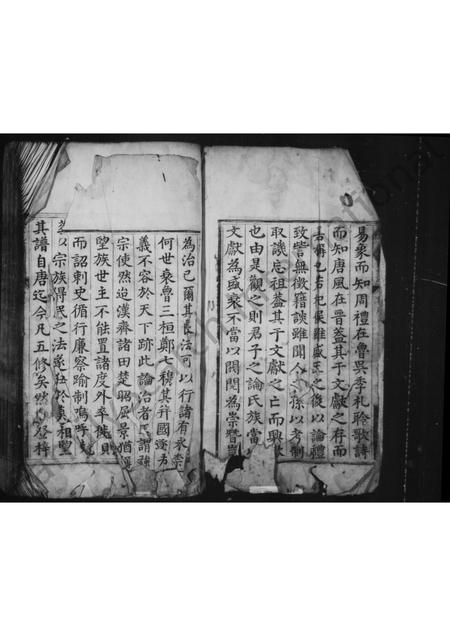 易象而知周禮在魯吳季札聆歌詩
而知唐風在晉蓋其于文獻之存而
也若杞侯雖盛王之後以論禮
致訾無徵籍談雖聞人之孫以考制
取譏忘祖蓋其于文獻之亡而興
也由是觀之則君子之論氏族當
文獻為盛衰不當以閥閱為崇替
為治已爾其長治可以行諸有永
何世乘魯三桓鄭七穆其弁國
義不容於天下跡此論治者民謂強
宗使然迨漢齊諸田楚昭屈景猶
望族世主不能置諸度外卒徙
而詔刺史循行廉察踰制嗚呼
以宗族得民之法家杜於相望
其譜自唐迄今凡五修矣然登梓